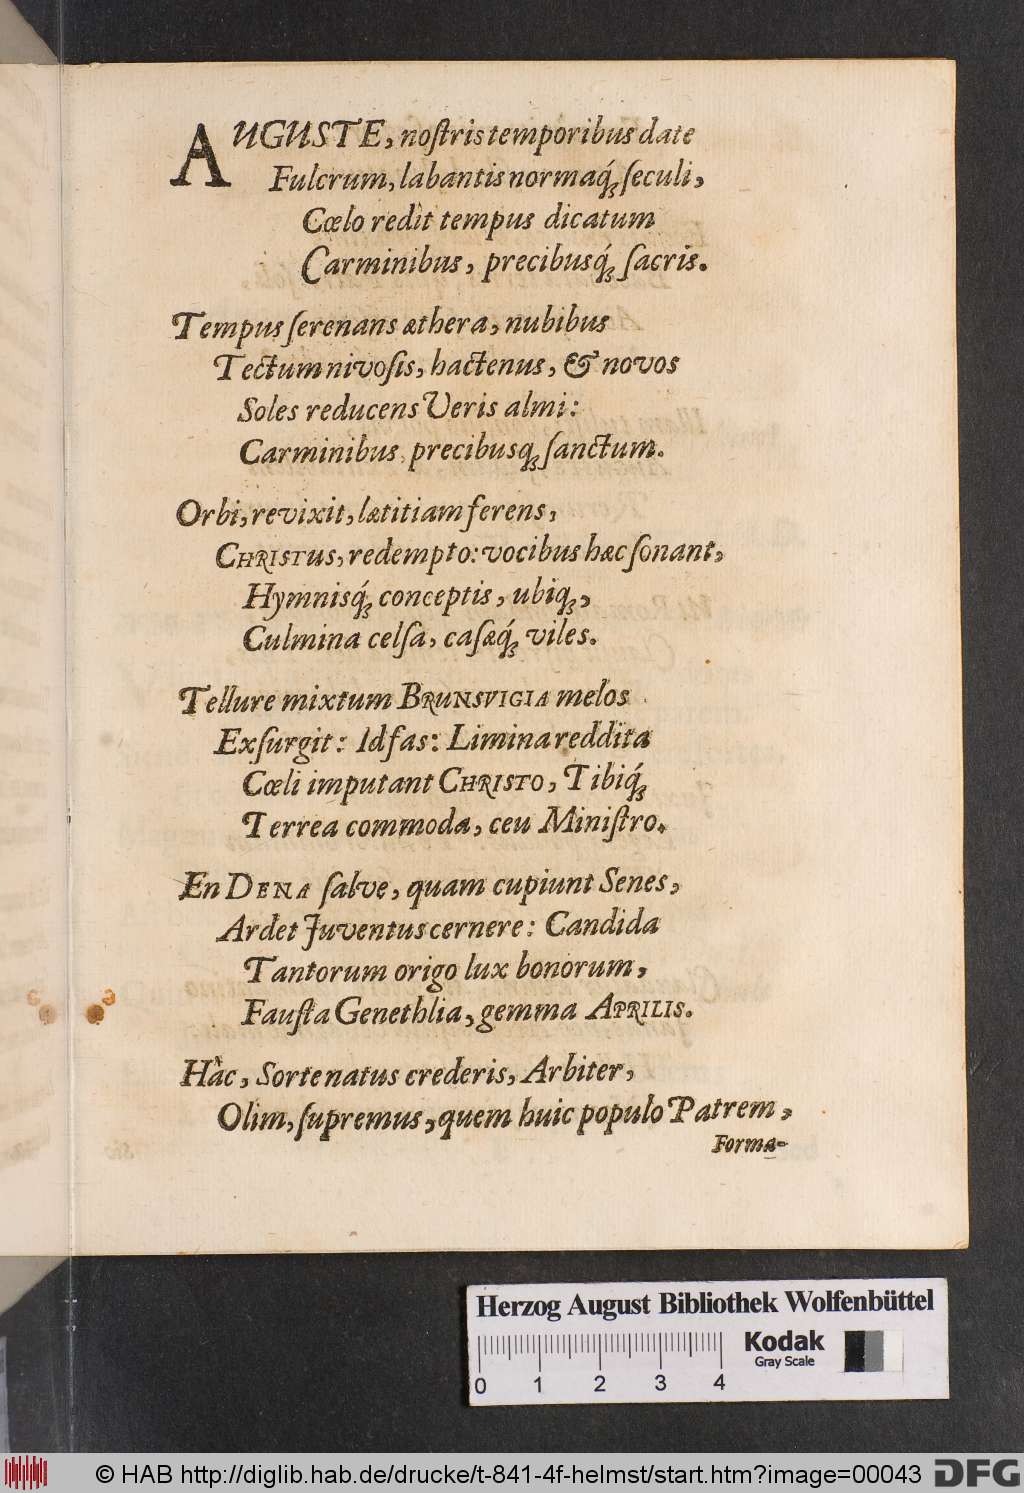 AUGUSTE, noſtris temporibus date
Fulcrum, labantis normaq́ꝫ ſeculi,
Cœlo redit tempus dicatum
Carminibus, precibusq́ꝫ ſacris.
Tempus ſerenans æthera, nubibus
Tectum nivoſis, hactenus, & novos
Soles reducens Veris almi:
Carminibus precibusqꝫ ſanctum.
Orbi, revixit, lætitiam ferens,
CHRISTUS, redempto: vocibus hæc ſonant,
Hymnisq́ꝫ conceptis, ubiqꝫ,
Culmina celſa, caſæq́ꝫ viles.
Tellure mixtum BRUNSVIGIA melos
Exſurgit: Id fas: Limina reddita
Cœli imputant CHRISTO, Tibiq́ꝫ
Terrea commoda, ceu Miniſtro.
En DENA ſalve, quam cupiunt Senes,
Ardet Juventus cernere: Candida
Tantorum origo lux bonorum,
Fauſta Genethlia, gemma APRILIS.
Hàc, Sorte natus crederis, Arbiter,
Olim, ſupremus, quem huic populo Patrem,
Forma-
Herzog August Bibliothek Wolfenbüttel
Kodak
Gray Scale
0 1 2 3 4
© HAB http://diglib.hab.de/drucke/t-841-4f-helmst/start.htm?image=00043
DFG